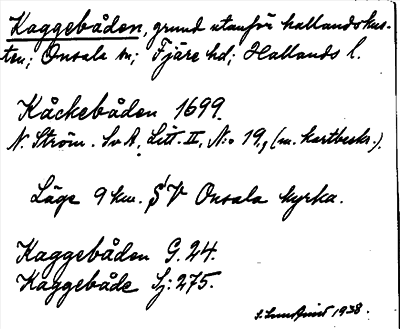 Kaggebåden, grund utanför hallandskus-
ten; Onsala sn; Fjäre hd; Hallands l.
Kåckebåden 1699.
N. Ström. SvA. Litt. II, N:o 19, (m. kartbeskr.).
Läge 9 km. S V Onsala kyrka.
Kaggebåden G. 24.
Kaggebåde Sj: 275.
Lundqvist 1938.